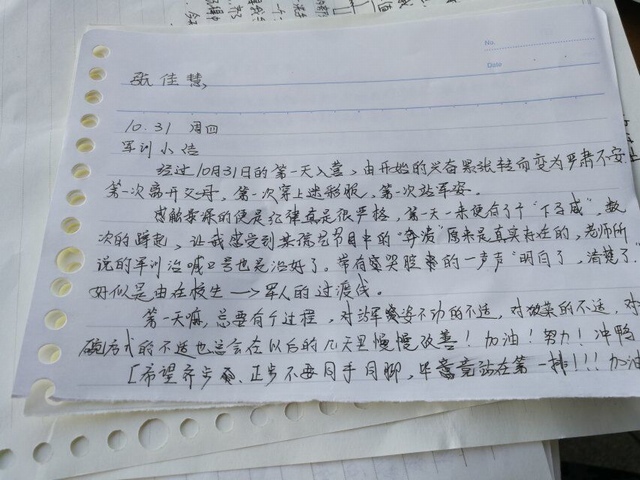 No.
Date
张佳慧
10.31 周四
军训小结
经过10月31日的第一天入营,由开始的兴奋紧张转而变为严肃不安
第一次离开父母,第一次穿上迷彩服,第一次站军姿。
感触最深的便是纪律真是很严格,第一天一来便有了个“下马威”,数
次的蹲起,让我感受到综艺节目中的“奔溃”原来是真实存在的,老师所
说的军训治喊2号也是治好了。带有窒哭腔的一步声“明白了,清楚了,
好似是由在校生→军人的过渡线。
第一天嘛,总要有个过程,对站军姿不动的不适,对做菜的不适,对
的不适也总会在以后的几天里慢慢改善!加油!努力!冲鸭
[希望齐步、正步不再同手同脚,毕竟站在第一排!!!加油